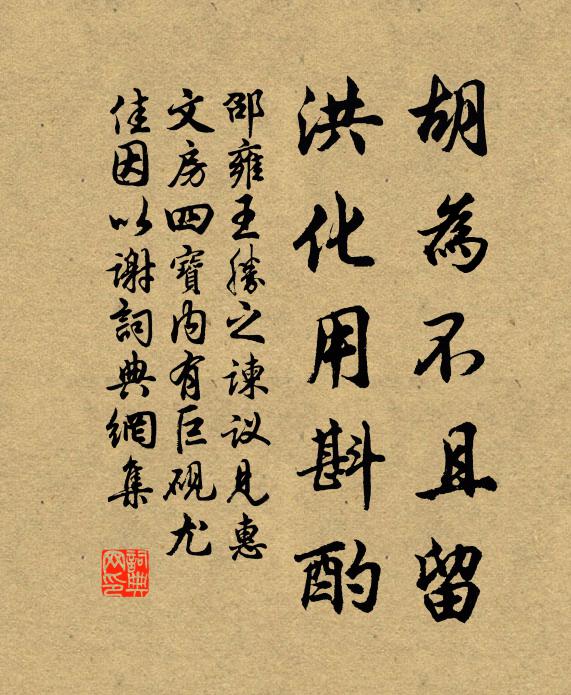 胡為不且留
洪化用斟酌
邵雍王勝之諫议見惠
文房四寶內有巨硯尤
佳因以谢詞典網集
詞典网印